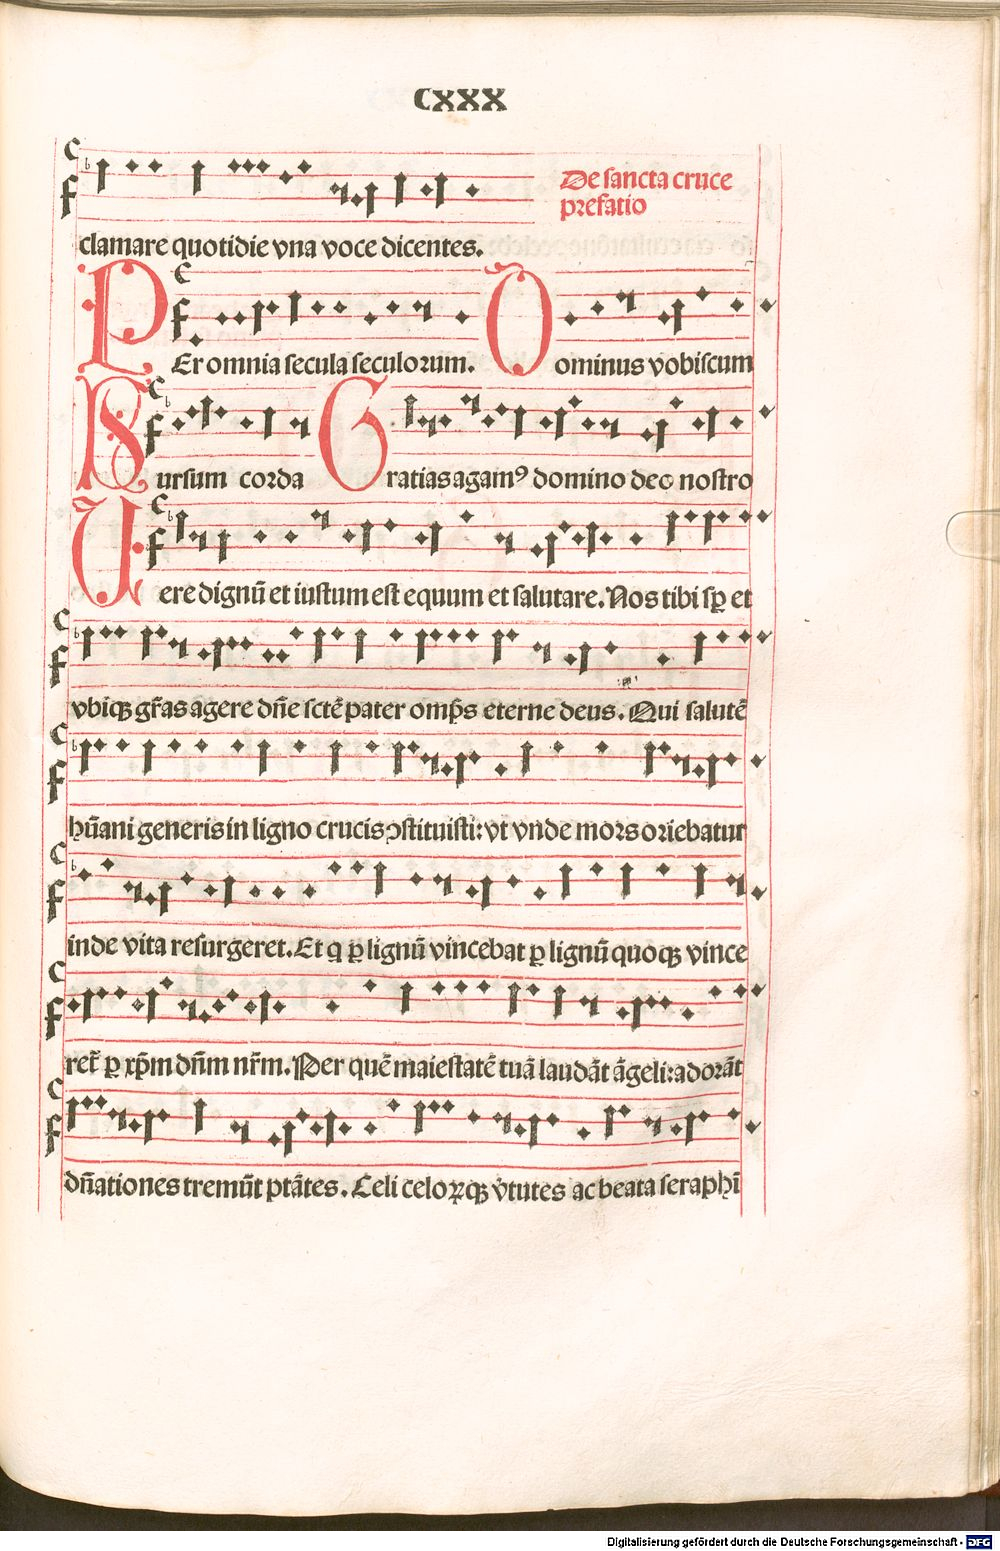 CXXX
De sancta cruce
prefatio
clamare quotidie vna voce dicentes.
PEr omnia secula seculorum. Dominus vobiscum
Sursum corda Gratias agamꝰ domino deo nostro
Uere dignū et iustum est equum et salutare. Nos tibi sꝑ et
vbiqꝫ gr̄as agere dn̄e sctē pater omp̄s eterne deus. Qui salutē
hūani generis in ligno crucis ꝯstituisti: vt vnde mors oriebatur
inde vita resurgeret. Et q̇ ꝑ lignū vincebat ꝑ lignū quoqꝫ vince
ret̄ ꝑ xp̄m dn̄m nr̄m. Per quē maiestatē tuā laudāt āgeli: adorāt
dn̄ationes tremūt ptātes. Celi celoꝝqꝫ v̓tutes ac beata seraphī
Digitalisierung gefördert durch die Deutsche Forschungsgemeinschaft - DFG